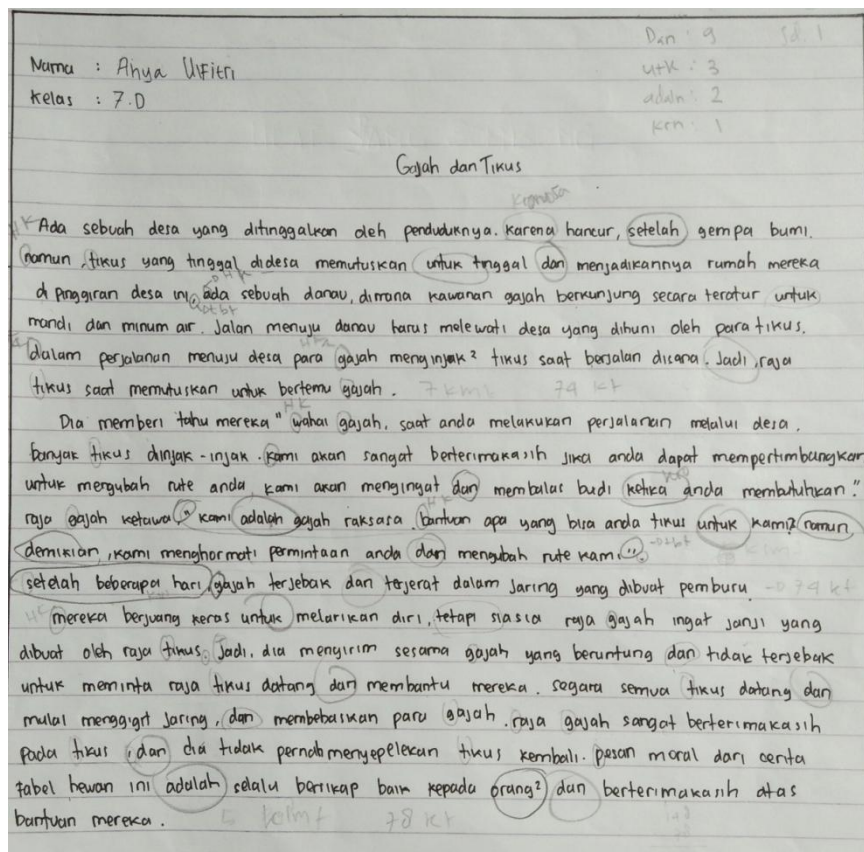 Dan : 9
Nama : Anya Ulfitri
utk : 3
Kelas : 7.D
adaln : 2
krn : 1
Gajah dan Tikus
Ada sebuah desa yang ditinggalkan oleh penduduknya. Karena hancur, setelah gempa bumi.
namun, tikus yang tinggal didesa memutuskan untuk tinggal dan menjadikannya rumah mereka
di pinggiran desa ini, ada sebuah danau, dimana kawanan gajah berkunjung secara teratur untuk
mandi dan minum air. Jalan menuju danau harus melewati desa yang dihuni oleh para tikus.
dalam perjalanan menuju desa para gajah menginjak² tikus saat berjalan disana. Jadi, raja
tikus saat memutuskan untuk bertemu gajah.
7 kmt 74 kt
Dia memberi tahu mereka " wahai gajah, saat anda melakukan perjalanan melalui desa.
banyak tikus dinjak - injak. kami akan sangat berterimakasih jika anda dapat mempertimbangkan
untuk mergubah rute anda, kami akan mengingat dan membalas budi ketika anda membutuhkan."
raja gajah ketawa " kami adalah gajah raksasa. bantuan apa yang bisa anda tikus untuk kami? namun,
demikian, kami menghormati permintaan anda dan mengubah rute kami".
setelah beberapa hari, gajah terjebak dan terjerat dalam jaring yang dibuat pemburu. 74 kt
mereka berjuang keras untuk melarikan diri, tetapi siasia raja gajah ingat janji yang
dibuat oleh raja tikus. Jadi, dia mengirim sesama gajah yang beruntung dan tidak terjebak
untuk meminta raja tikus datang dan membantu mereka. segara semua tikus datang dan
mulai menggigit jaring, dan membebaskan para gajah. raja gajah sangat berterimakasih
pada tikus, dan dia tidak pernah menyepelekan tikus kembali. pesan moral dari cerita
fabel hewan ini adalah selalu bersikap baik kepada orang² dan berterimakasih atas
bantuan mereka.
78 kt